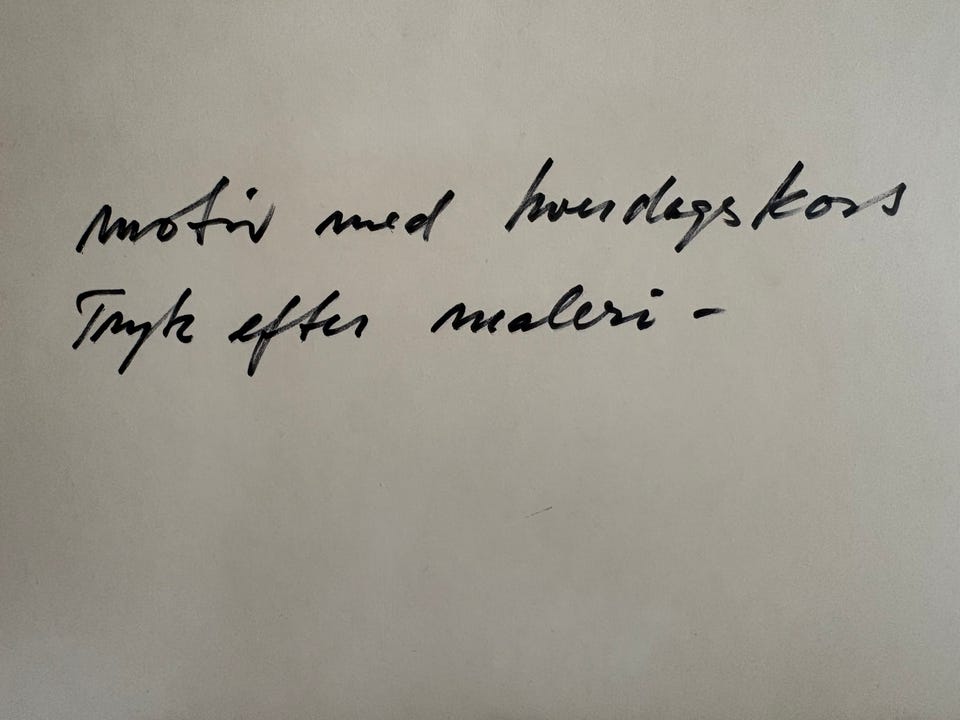 motiv med hverdagskors
Tryk efter maleri -